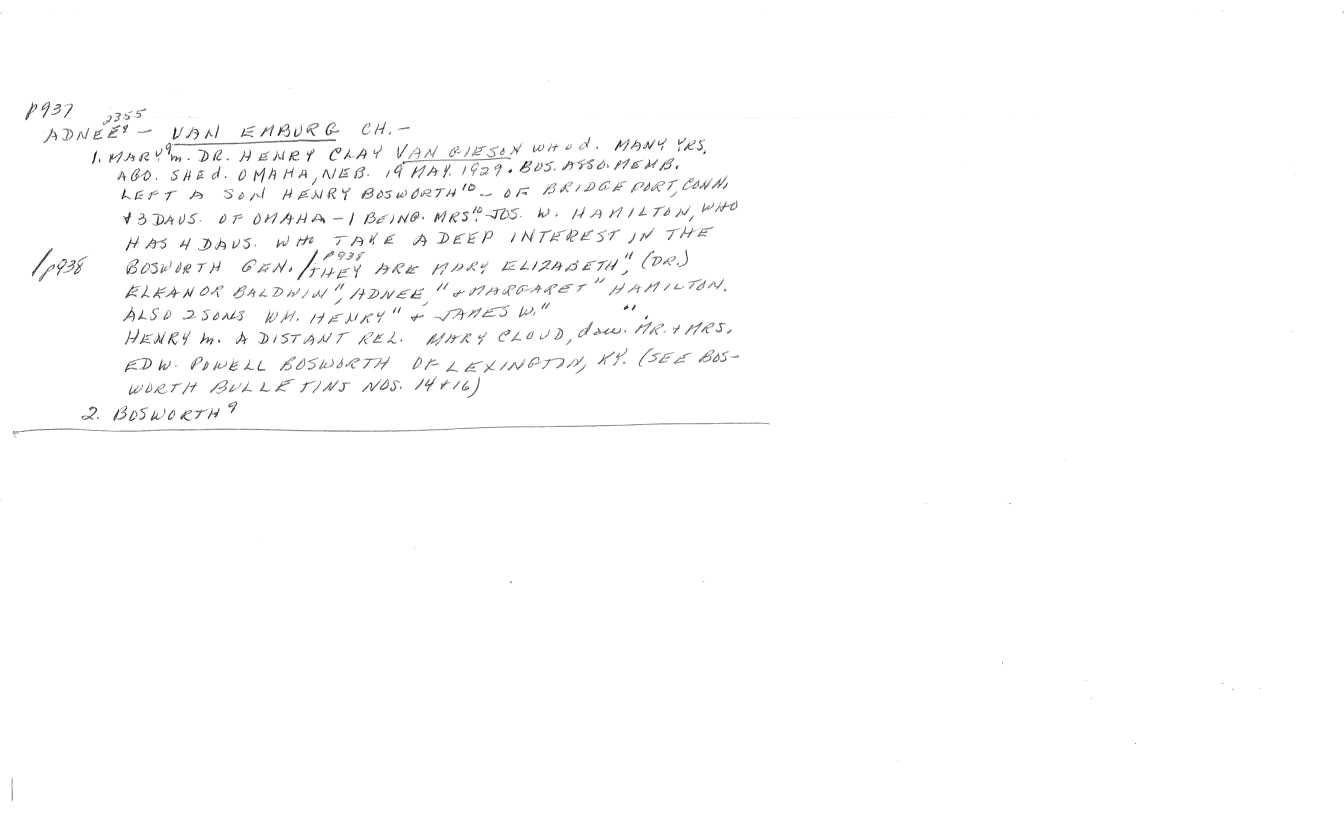 p937
2355
ADNEE⁹ — VAN EMBURG CH. —
1. MARY⁹ m. DR. HENRY CLAY VAN GIESON WHO d. MANY YRS.
AGO. SHE d. OMAHA, NEB. 19 MAY. 1929. BOS. ASSO. MEMB.
LEFT A SON HENRY BOSWORTH¹⁰ — OF BRIDGEPORT, CONN.
+ 3 DAUS. OF OMAHA — 1 BEING. MRS.¹⁰ JOS. W. HAMILTON, WHO
HAS 4 DAUS. WHO TAKE A DEEP INTEREST IN THE
/p938 BOSWORTH GEN. /p938 THEY ARE MARY ELIZABETH¹¹, (DR.)
ELEANOR BALDWIN¹¹, ADNEE,¹¹ + MARGARET¹¹ HAMILTON.
ALSO 2 SONS WM. HENRY¹¹ + JAMES W.¹¹ ".
HENRY m. A DISTANT REL. MARY CLOUD, dau. MR. + MRS.
EDW. POWELL BOSWORTH OF LEXINGTON, KY. (SEE BOS-
WORTH BULLETINS NOS. 14 + 16)
2. BOSWORTH⁹